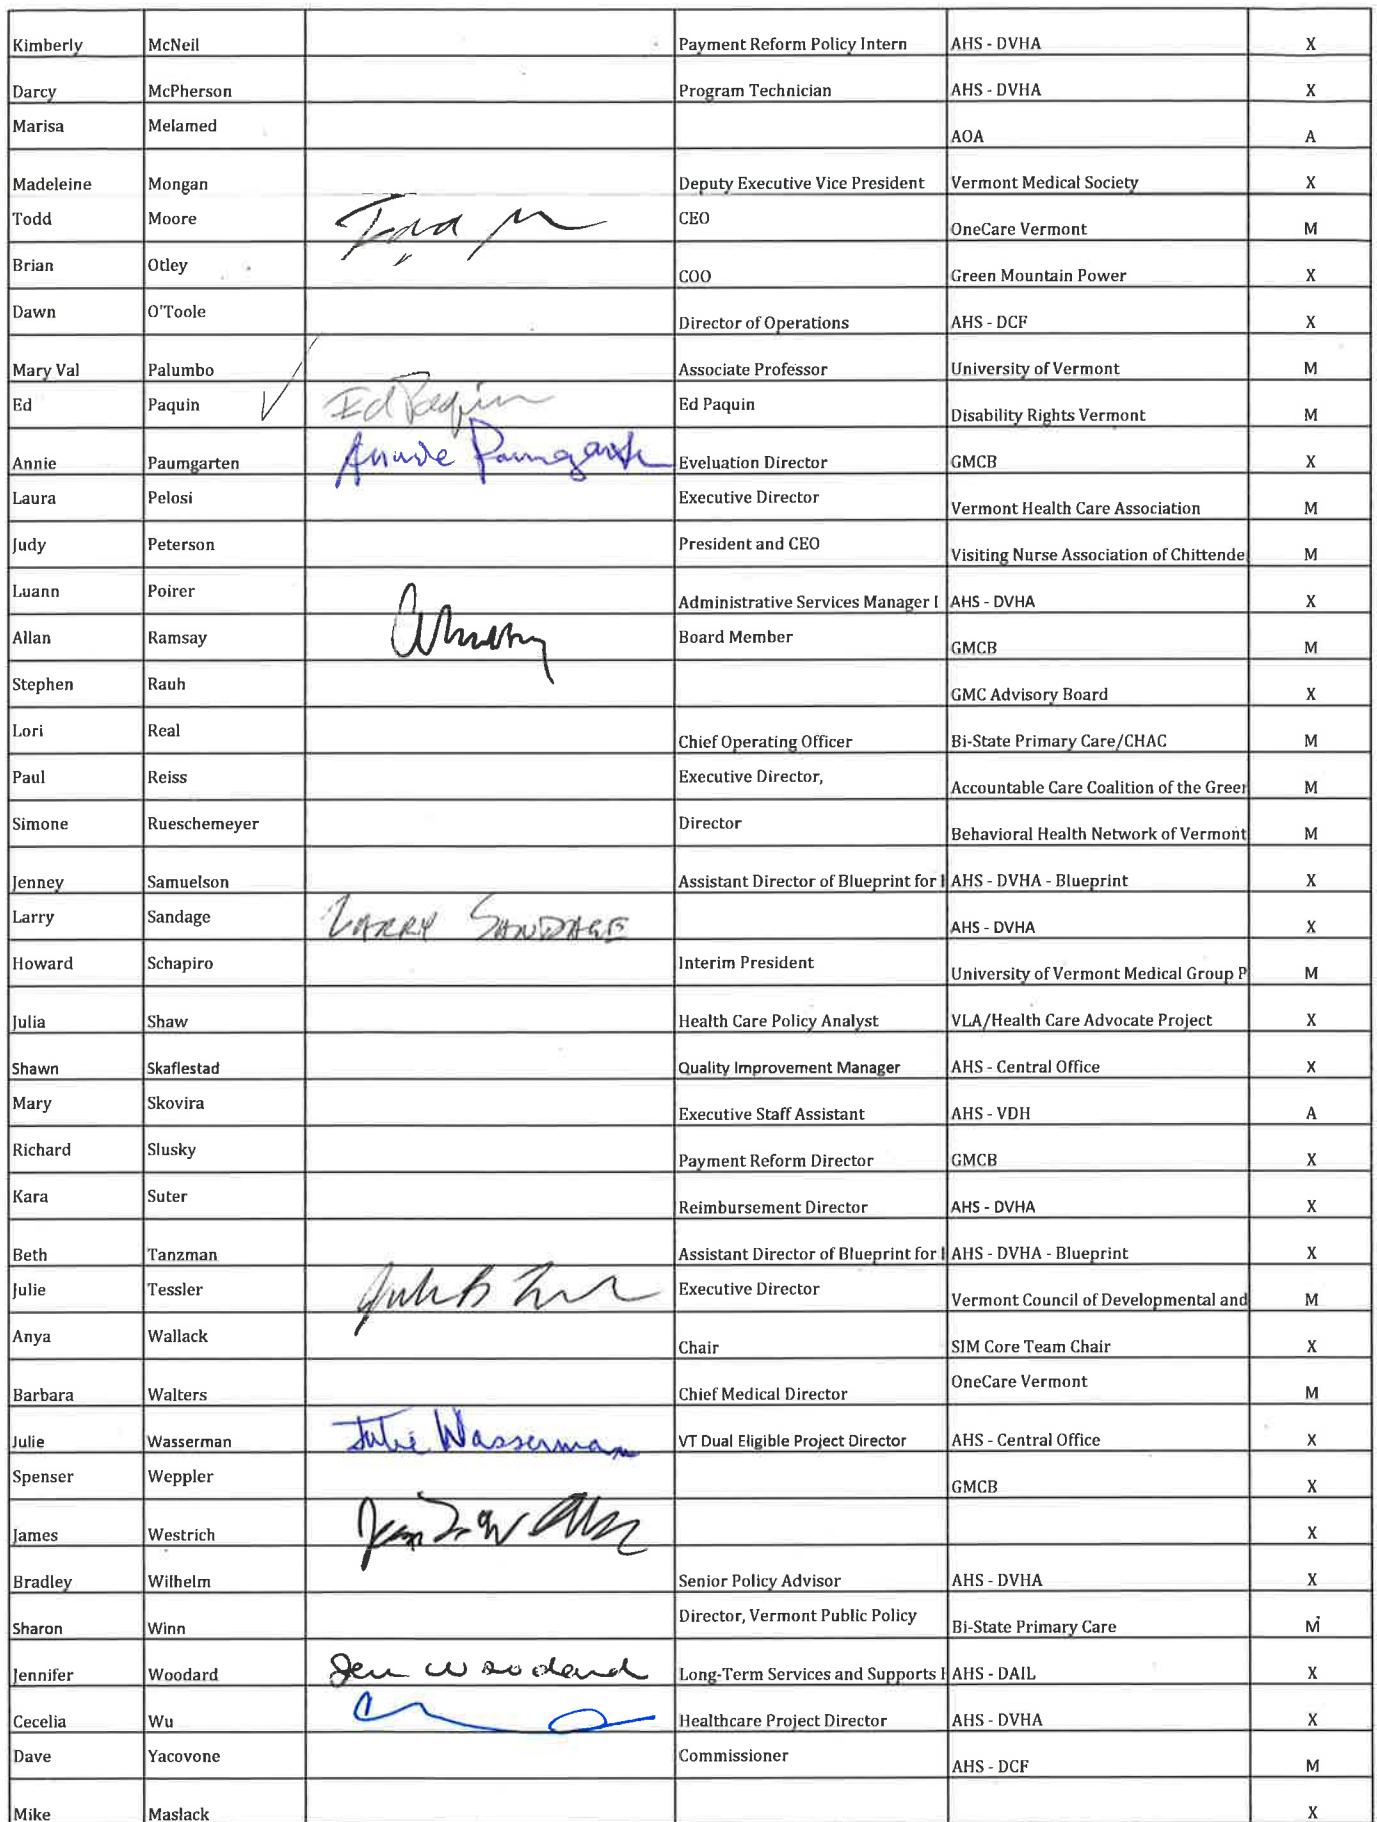 Kimberly McNeil Payment Reform Policy Intern AHS - DVHA X
Darcy McPherson Program Technician AHS - DVHA X
Marisa Melamed AOA A
Madeleine Mongan Deputy Executive Vice President Vermont Medical Society X
Todd Moore Todd M CEO OneCare Vermont M
Brian Otley COO Green Mountain Power X
Dawn O'Toole Director of Operations AHS - DCF X
Mary Val Palumbo Associate Professor University of Vermont M
Ed Paquin ✓ Ed Paquin Ed Paquin Disability Rights Vermont M
Annie Paumgarten Annie Paumgarten Eveluation Director GMCB X
Laura Pelosi Executive Director Vermont Health Care Association M
Judy Peterson President and CEO Visiting Nurse Association of Chittende M
Luann Poirer Administrative Services Manager I AHS - DVHA X
Allan Ramsay Board Member GMCB M
Stephen Rauh GMC Advisory Board X
Lori Real Chief Operating Officer Bi-State Primary Care/CHAC M
Paul Reiss Executive Director, Accountable Care Coalition of the Green M
Simone Rueschemeyer Director Behavioral Health Network of Vermont M
Jenney Samuelson Assistant Director of Blueprint for H AHS - DVHA - Blueprint X
Larry Sandage LARRY SANDAGE AHS - DVHA X
Howard Schapiro Interim President University of Vermont Medical Group P M
Julia Shaw Health Care Policy Analyst VLA/Health Care Advocate Project X
Shawn Skaflestad Quality Improvement Manager AHS - Central Office X
Mary Skovira Executive Staff Assistant AHS - VDH A
Richard Slusky Payment Reform Director GMCB X
Kara Suter Reimbursement Director AHS - DVHA X
Beth Tanzman Assistant Director of Blueprint for H AHS - DVHA - Blueprint X
Julie Tessler Executive Director Vermont Council of Developmental and M
Anya Wallack Chair SIM Core Team Chair X
Barbara Walters Chief Medical Director OneCare Vermont M
Julie Wasserman Julie Wasserman VT Dual Eligible Project Director AHS - Central Office X
Spenser Weppler GMCB X
James Westrich X
Bradley Wilhelm Senior Policy Advisor AHS - DVHA X
Sharon Winn Director, Vermont Public Policy Bi-State Primary Care M
Jennifer Woodard Jen Woodard Long-Term Services and Supports H AHS - DAIL X
Cecelia Wu Healthcare Project Director AHS - DVHA X
Dave Yacovone Commissioner AHS - DCF M
Mike Maslack X